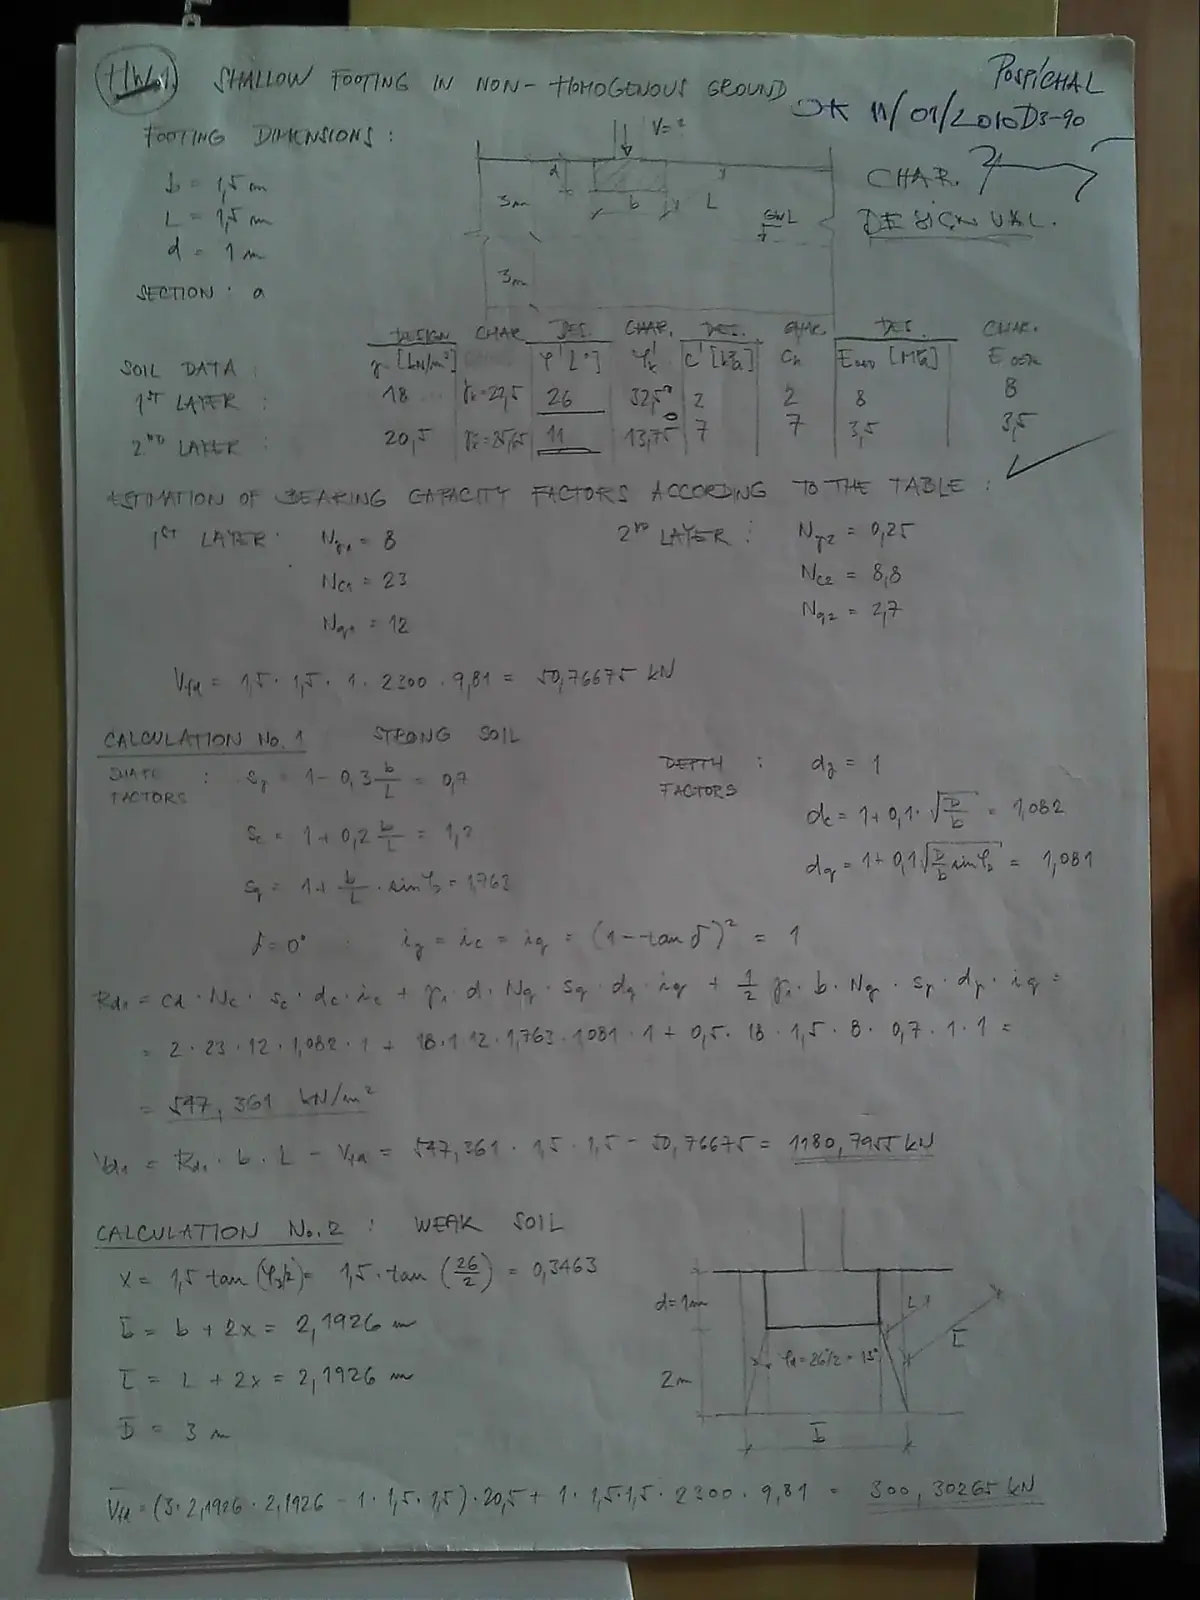 HW.1. SHALLOW FOOTING IN NON-HOMOGENOUS GROUND
POSPÍCHAL
OK 11/01/2010 D3-90
FOOTING DIMENSIONS :
b = 1,5 m
L = 1,5 m
d = 1 m
SECTION : a
V = ?
d
3m
b
L
GWL
3m
CHAR. ?
DESIGN VAL.
DESIGN CHAR. DES. CHAR. DES. CHAR. DES. CHAR.
SOIL DATA : γ [kN/m³] φ' [°] φ'k c' [kPa] ck Eoed [MPa] E oedk
1ST LAYER : 18 γk = 22,5 26 32,5° 2 2 8 8
2ND LAYER : 20,5 γk = 25,65 11 13,75° 7 7 3,5 3,5
ESTIMATION OF BEARING CAPACITY FACTORS ACCORDING TO THE TABLE :
1ST LAYER : Nγ1 = 8 2ND LAYER : Nγ2 = 0,25
Nc1 = 23 Nc2 = 8,8
Nq1 = 12 Nq2 = 2,7
Vfd = 1,5 · 1,5 · 1 · 2300 · 9,81 = 50,76675 kN
CALCULATION No. 1 STRONG SOIL
SHAPE FACTORS : sγ = 1 - 0,3 b/L = 0,7
DEPTH FACTORS : dγ = 1
sc = 1 + 0,2 b/L = 1,2
dc = 1 + 0,1 · √(D/b) = 1,082
sq = 1 + b/L · sin φd = 1,763
dq = 1 + 0,1 √(D/b sin φd) = 1,081
δ = 0° : iγ = ic = iq = (1 - tan δ)² = 1
Rd1 = cd · Nc · sc · dc · ic + γ1 · d · Nq · sq · dq · iq + 1/2 γ1 · b · Nγ · sγ · dγ · iq =
= 2 · 23 · 12 · 1,082 · 1 + 18 · 1 · 12 · 1,763 · 1081 · 1 + 0,5 · 18 · 1,5 · 8 · 0,7 · 1 · 1 =
= 547,361 kN/m²
Vd1 = Rd1 · b · L - Vfd = 547,361 · 1,5 · 1,5 - 50,76675 = 1180,7955 kN
CALCULATION No. 2 : WEAK SOIL
x = 1,5 tan (φd/2) = 1,5 · tan (26/2) = 0,3463
b̄ = b + 2x = 2,1926 m
L̄ = L + 2x = 2,1926 m
D̄ = 3 m
d = 1m
L
L̄
x
φd = 26/2 = 13°
2m
b̄
V̄fd = (3 · 2,1926 · 2,1926 - 1 · 1,5 · 1,5) · 20,5 + 1 · 1,5 · 1,5 · 2300 · 9,81 = 300,30265 kN